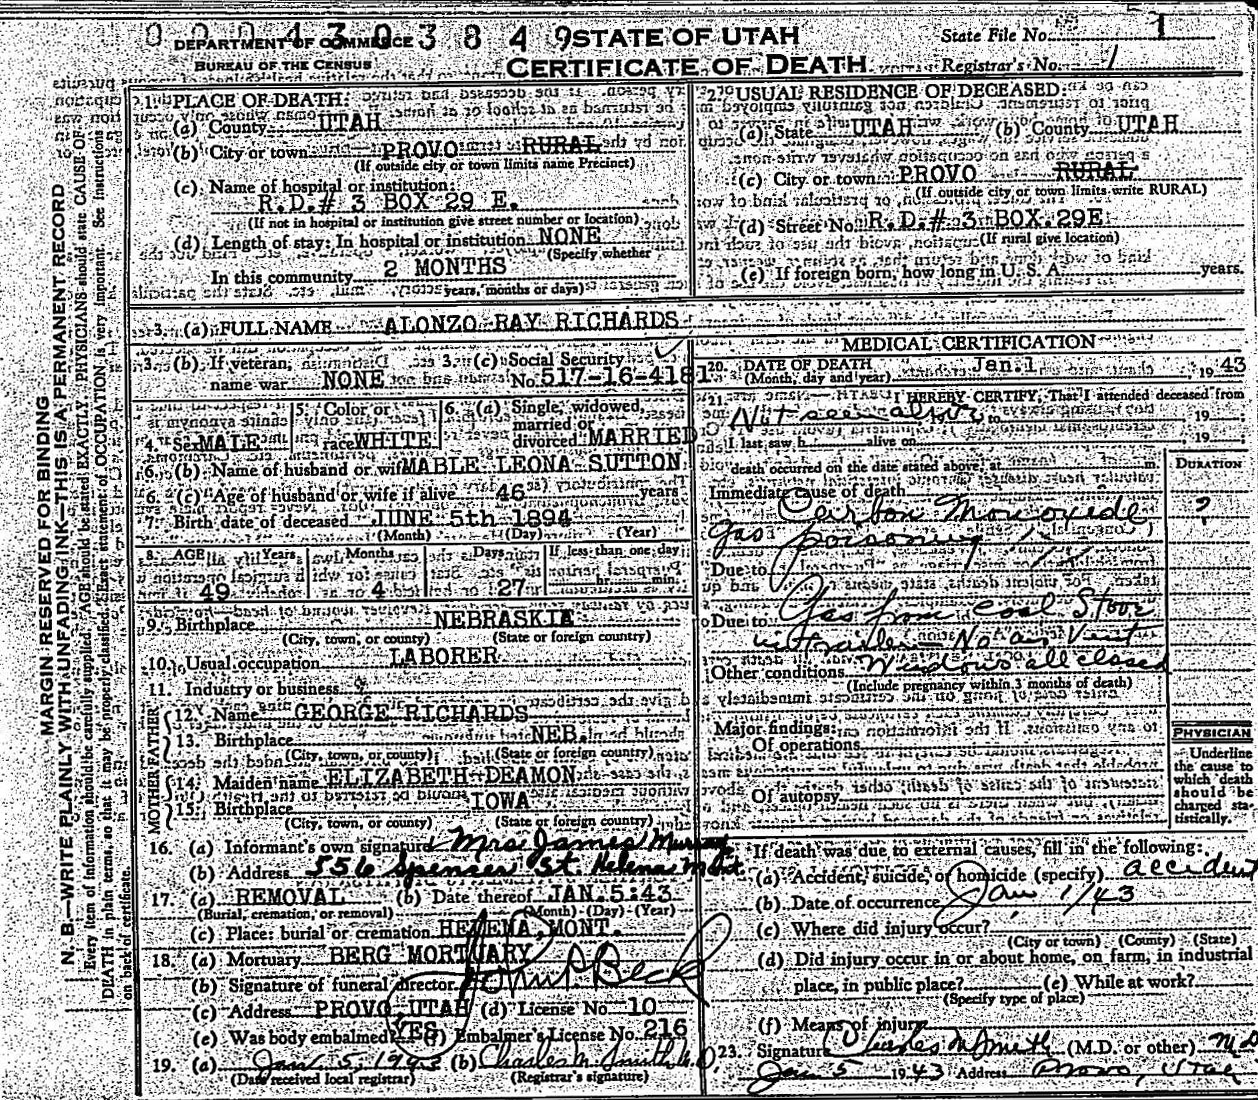 0004303849
DEPARTMENT OF COMMERCE
BUREAU OF THE CENSUS
STATE OF UTAH
CERTIFICATE OF DEATH
State File No. 1
Registrar's No. 1
MARGIN RESERVED FOR BINDING
N. B.—WRITE PLAINLY WITH UNFADING INK—THIS IS A PERMANENT RECORD
Every item of information should be carefully supplied. AGE should be stated EXACTLY. PHYSICIANS should state CAUSE OF
DEATH in plain terms, so that it may be properly classified. Exact statement of OCCUPATION is very important. See instructions
on back of certificate.
1. PLACE OF DEATH:
(a) County UTAH
(b) City or town PROVO RURAL
(If outside city or town limits name Precinct)
(c) Name of hospital or institution:
R.D.# 3 BOX 29 E.
(If not in hospital or institution give street number or location)
(d) Length of stay: In hospital or institution NONE
(Specify whether
In this community 2 MONTHS
years, months or days)
2. USUAL RESIDENCE OF DECEASED:
(a) State UTAH (b) County UTAH
(c) City or town PROVO RURAL
(If outside city or town limits write RURAL)
(d) Street No. R.D.# 3 BOX 29E
(If rural give location)
(e) If foreign born, how long in U. S. A. years.
3. (a) FULL NAME ALONZO RAY RICHARDS
3. (b) If veteran, name war NONE
3. (c) Social Security No. 517-16-4181
4. Sex MALE
5. Color or race WHITE
6. (a) Single, widowed, married or divorced MARRIED
6. (b) Name of husband or wife MABLE LEONA SUTTON
6. (c) Age of husband or wife if alive 46 years
7. Birth date of deceased JUNE 5th 1894
(Month) (Day) (Year)
8. AGE Years Months Days If less than one day
49 4 27 hr. min.
9. Birthplace NEBRASKIA
(City, town, or county) (State or foreign country)
10. Usual occupation LABORER
11. Industry or business
FATHER
12. Name GEORGE RICHARDS
13. Birthplace NEB.
(City, town, or county) (State or foreign country)
MOTHER
14. Maiden name ELIZABETH DEAMON
15. Birthplace IOWA
(City, town, or county) (State or foreign country)
16. (a) Informant's own signature Mrs James Murray
(b) Address 556 Spenser St. Helena Mont.
17. (a) REMOVAL (b) Date thereof JAN. 5:43
(Burial, cremation, or removal) (Month) (Day) (Year)
(c) Place: burial or cremation HELENA, MONT.
18. (a) Mortuary BERG MORTUARY
(b) Signature of funeral director John P. Beck
(c) Address PROVO, UTAH (d) License No 10
(e) Was body embalmed? YES (f) Embalmer's License No. 216
19. (a) Jan. 5, 1943 (b) Charles M. Smith M.D.
(Date received local registrar) (Registrar's signature)
MEDICAL CERTIFICATION
20. DATE OF DEATH Jan. 1 19 43
(Month, day and year)
21. I HEREBY CERTIFY, That I attended deceased from
Not seen alive to 19
I last saw h alive on 19
death occurred on the date stated above, at m.
DURATION
Immediate cause of death
Carbon Monoxide ?
gas poisoning
Due to
Due to Gas from coal Stove
in trailer No air Vent
Other conditions Windows all closed
(Include pregnancy within 3 months of death)
Major findings:
Of operations
Of autopsy
PHYSICIAN
Underline
the cause to
which death
should be
charged sta-
tistically.
If death was due to external causes, fill in the following:
(a) Accident, suicide, or homicide (specify) accident
(b) Date of occurrence Jan 1/43
(c) Where did injury occur?
(City or town) (County) (State)
(d) Did injury occur in or about home, on farm, in industrial
place, in public place? (e) While at work?
(Specify type of place)
(f) Means of injury
23. Signature Charles M Smith (M.D. or other) M.D.
Jan 5 19 43 Address Provo, Utah